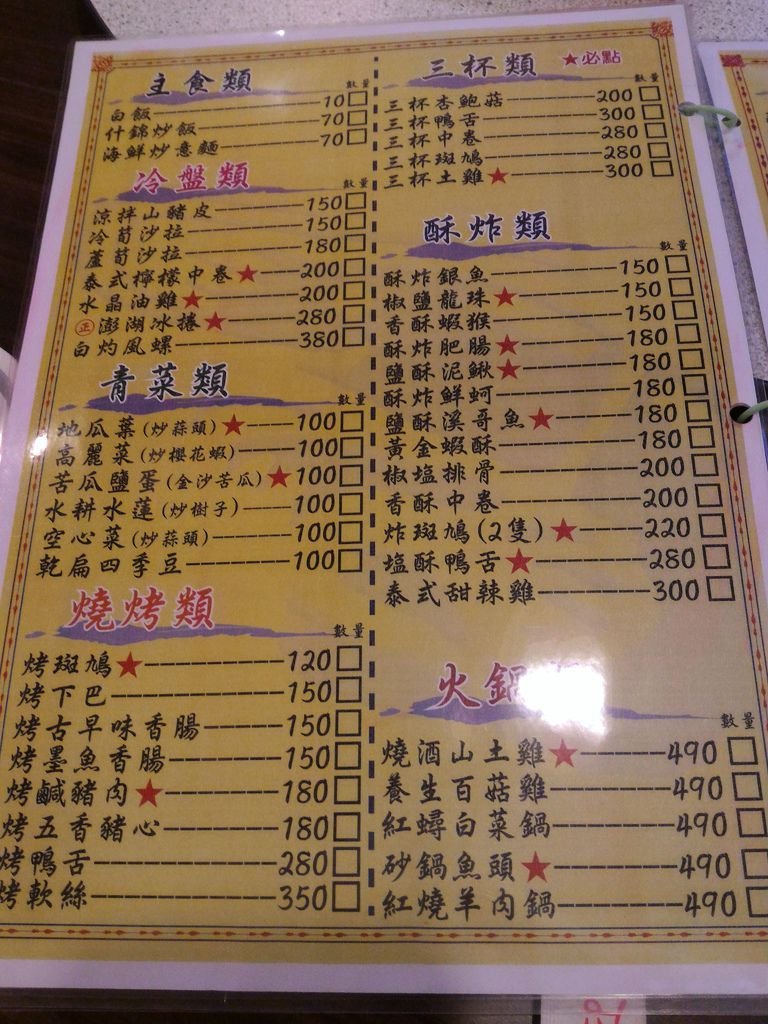 主食類
數量
白飯 10
什錦炒飯 70
海鮮炒意麵 70
冷盤類
數量
涼拌山豬皮 150
冷荀沙拉 150
蘆荀沙拉 180
泰式檸檬中卷★ 200
水晶油雞★ 200
㊣澎湖冰捲★ 280
白灼風螺 380
青菜類
數量
地瓜葉(炒蒜頭)★ 100
高麗菜(炒櫻花蝦) 100
苦瓜鹽蛋(金沙苦瓜)★ 100
水耕水蓮(炒樹子) 100
空心菜(炒蒜頭) 100
乾扁四季豆 100
燒烤類
數量
烤斑鳩★ 120
烤下巴 150
烤古早味香腸 150
烤墨魚香腸 150
烤鹹豬肉★ 180
烤五香豬心 180
烤鴨舌 280
烤軟絲 350
三杯類 ★必點
數量
三杯杏鮑菇 200
三杯鴨舌 300
三杯中卷 280
三杯斑鳩 280
三杯土雞★ 300
酥炸類
數量
酥炸銀魚 150
椒鹽龍珠★ 150
香酥蝦猴 150
酥炸肥腸★ 180
鹽酥泥鰍★ 180
酥炸鮮蚵 180
鹽酥溪哥魚★ 180
黃金蝦酥 180
椒塩排骨 200
香酥中卷 200
炸斑鳩(2隻)★ 220
塩酥鴨舌★ 280
泰式甜辣雞 300
火鍋
數量
燒酒山土雞★ 490
養生百菇雞 490
紅蟳白菜鍋 490
砂鍋魚頭★ 490
紅燒羊肉鍋 490